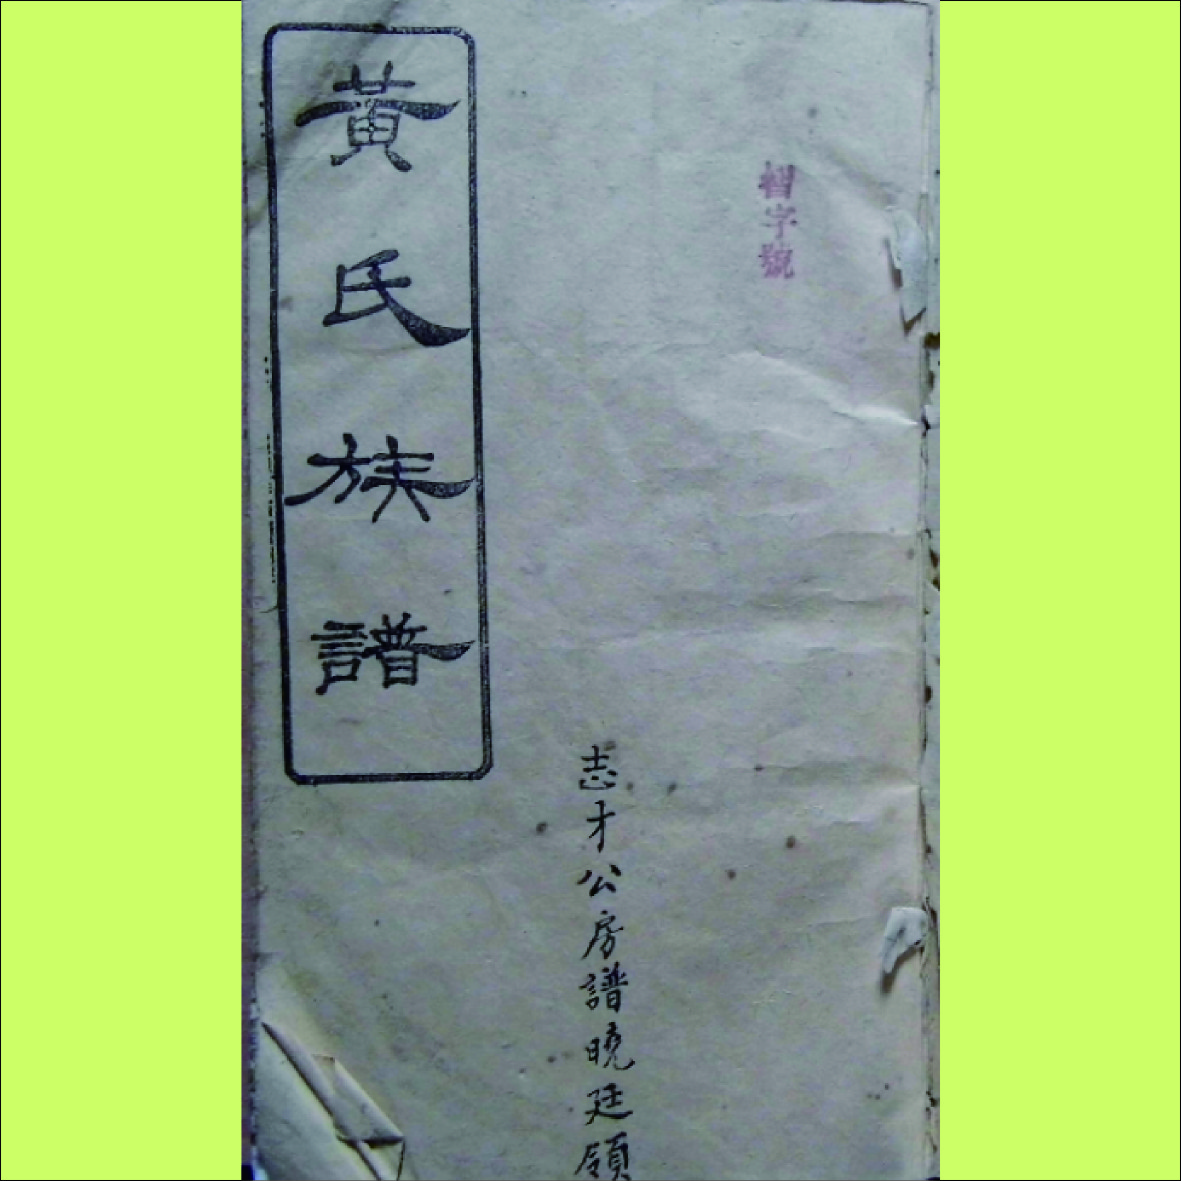 字號
志才公房譜曉廷領
黃氏族譜